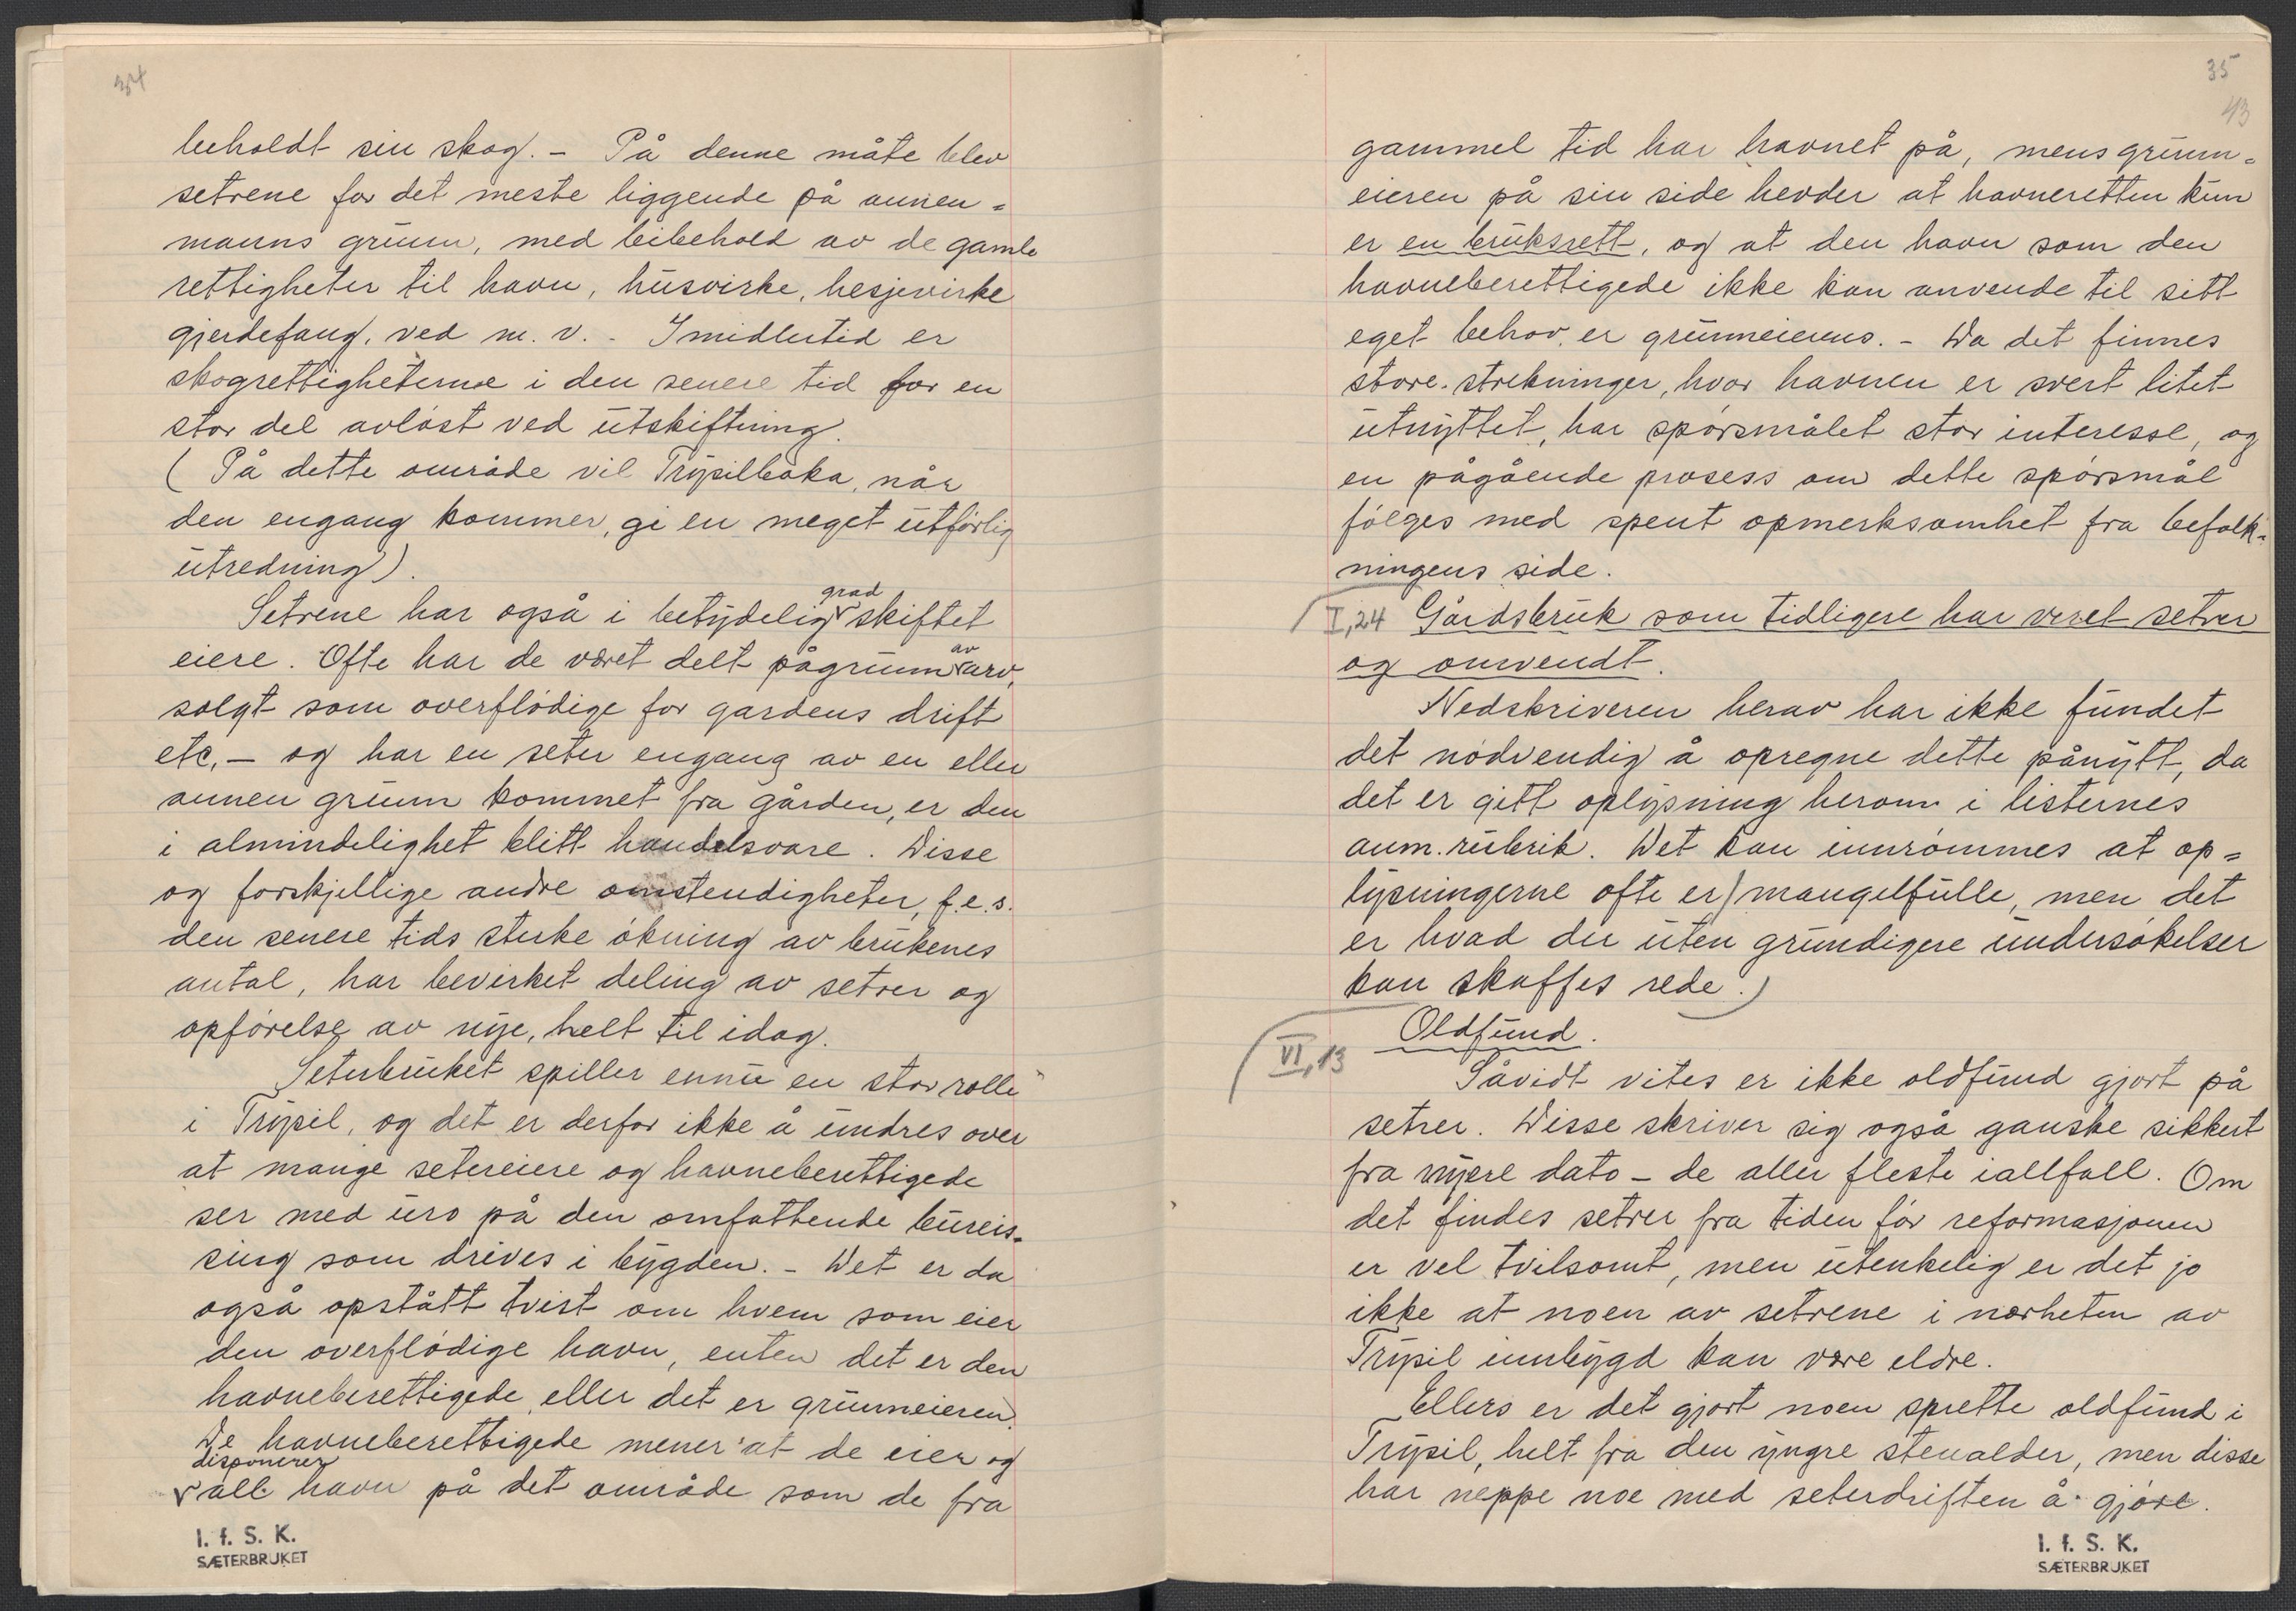 34
beholdt sin skog. - På denne måte blev
setrene for det meste liggende på annen=
manns grunn, med bibehold av de gamle
rettigheter til havn, husvirke, hesjevirke
gjerdefang, ved m. v. - Imidlertid er
skogrettigheterne i den senere tid for en
stor del avløst ved utskiftning.
(På dette område vil Trysilboka, når
den engang kommer, gi en meget utførlig
utredning).
Setrene har også i betydelig grad skiftet
eiere. Ofte har de været delt pågrunn av arv,
solgt som overflødige for gardens drift
etc. - og har en seter engang av en eller
annen grunn kommet fra gården, er den
i almindelighet blitt handelsvare. Disse
og forskjellige andre omstendigheter, f.e.s.
den senere tids sterke økning av brukenes
antal, har bevirket deling av setrer og
opførelse av nye, helt til idag.
Seterbruket spiller ennu en stor rolle
i Trysil, og det er derfor ikke å undres over
at mange setereiere og havneberettigede
ser med uro på den omfattende bureis=
sing som drives i bygden. - Det er da
også opstått tvist om hvem som eier
den overflødige havn, enten det er den
havneberettigede eller det er grunneieren.
De havneberettigede mener at de eier og
disponerer
all havn på det område som de fra
I. f. S. K.
SÆTERBRUKET
35
43
gammel tid har havnet på, mens grunn=
eieren på sin side hevder at havneretten kun
er en bruksrett, og at den havn som den
havneberettigede ikke kan anvende til sitt
eget behov, er grunneierens. - Da det finnes
store strekninger, hvor havnen er svert litet
utnyttet, har spørsmålet stor interesse, og
en pågående prosess om dette spørsmål
følges med spent opmerksomhet fra befolk=
ningens side.
I,24 Gårdsbruk som tidligere har veret setrer
og omvendt.
Nedskriveren herav har ikke fundet
det nødvendig å opregne dette pånytt, da
det er gitt oplysning herom i listernes
anm. rubrik. Det kan innrømmes at op=
lysningerne ofte er mangelfulle, men det
er hvad der uten grundigere undersøkelser
kan skaffes rede.)
VI,13 Oldfund.
Såvidt vites er ikke oldfund gjort på
setrer. Disse skriver sig også ganske sikkert
fra nyere dato - de aller fleste iallfall. Om
det findes setrer fra tiden før reformasjonen
er vel tvilsomt, men utenkelig er det jo
ikke at noen av setrene i nærheten av
Trysil innbygd kan være eldre.
Ellers er det gjort noen sprette oldfund i
Trysil, helt fra den yngre stenalder, men disse
har neppe noe med seterdriften å gjøre.
I. f. S. K.
SÆTERBRUKET